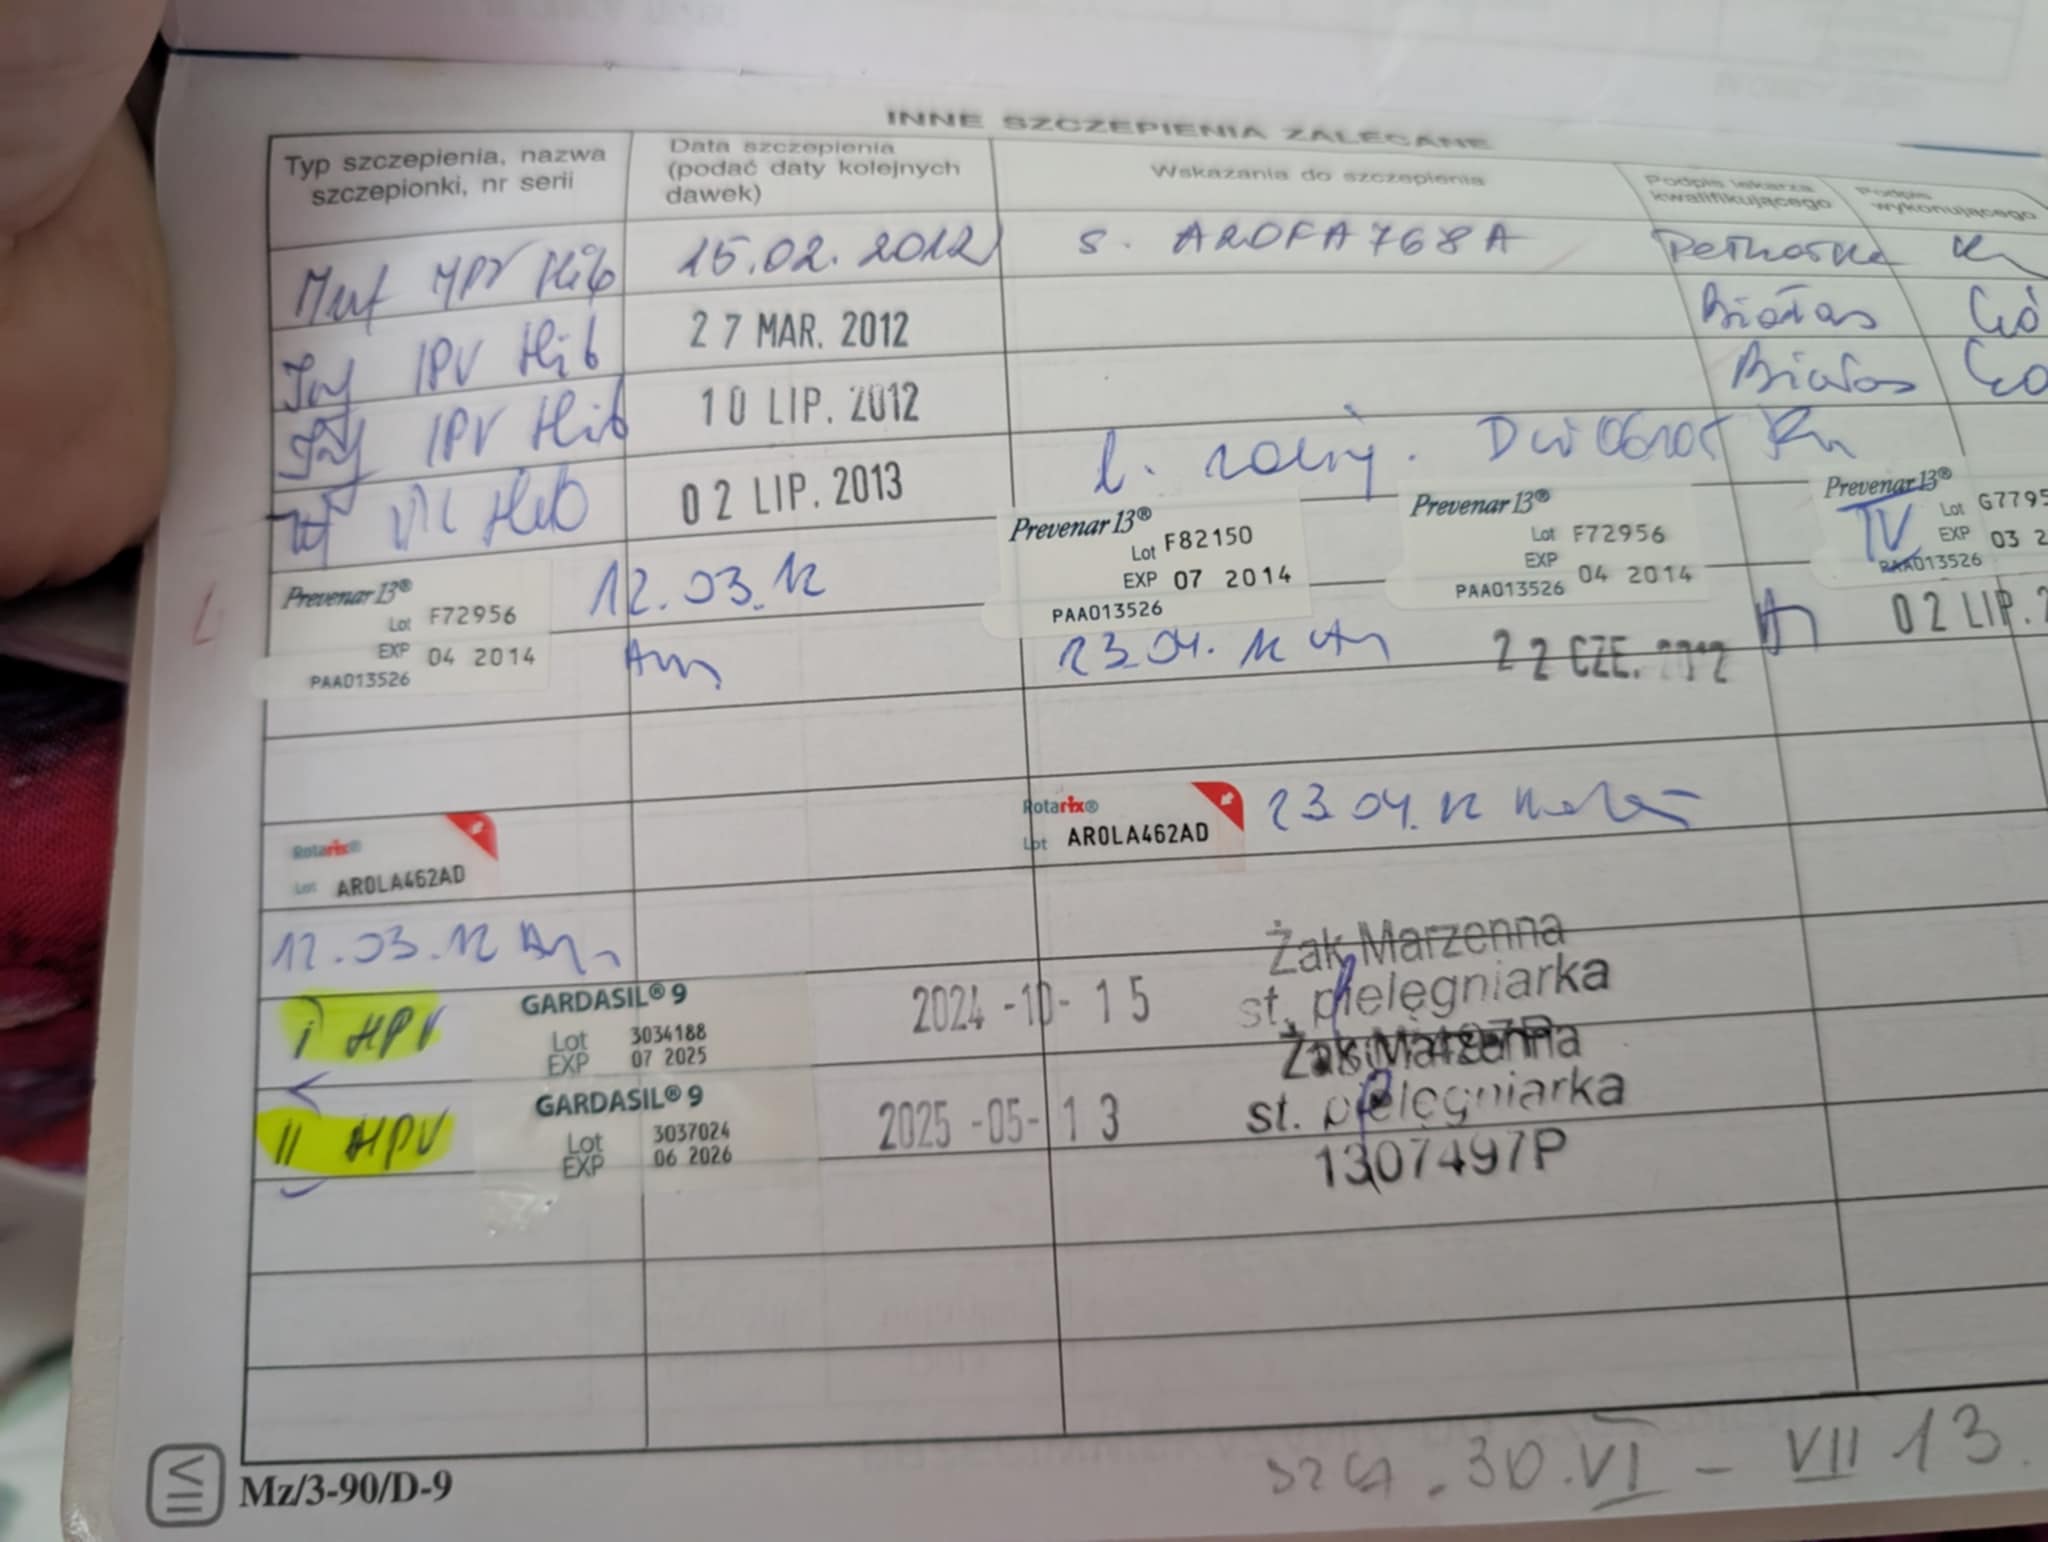 INNE SZCZEPIENIA ZALECANE
Typ szczepienia, nazwa szczepionki, nr serii
Data szczepienia (podać daty kolejnych dawek)
Wskazania do szczepienia
Podpis lekarza kwalifikującego
Podpis wykonującego
Hib 15.02.2012 s. AROFA768A
IPV Hib 27 MAR. 2012 Białas
IPV Hib 10 LIP. 2012 Białas
Hib 02 LIP. 2013
Prevenar 13® Lot F72956 EXP 04 2014 PAA013526
12.03.12
Prevenar 13® Lot F82150 EXP 07 2014 PAA013526
23.04.12
Prevenar 13® Lot F72956 EXP 04 2014 PAA013526
22 CZE. 2012
Prevenar 13® IV Lot G7795 EXP 03 2 PAA013526
02 LIP. 2
Rotarix® Lot AROLA462AD
Rotarix® Lot AROLA462AD
23.04.12
12.03.12
I HPV GARDASIL® 9 Lot 3034188 EXP 07 2025
2024-10-15
Żak Marzenna
st. pielęgniarka
II HPV GARDASIL® 9 Lot 3037024 EXP 06 2026
2025-05-13
Żak Marzenna
st. pielęgniarka
1307497P
Mz/3-90/D-9
30.VI - VII 13.